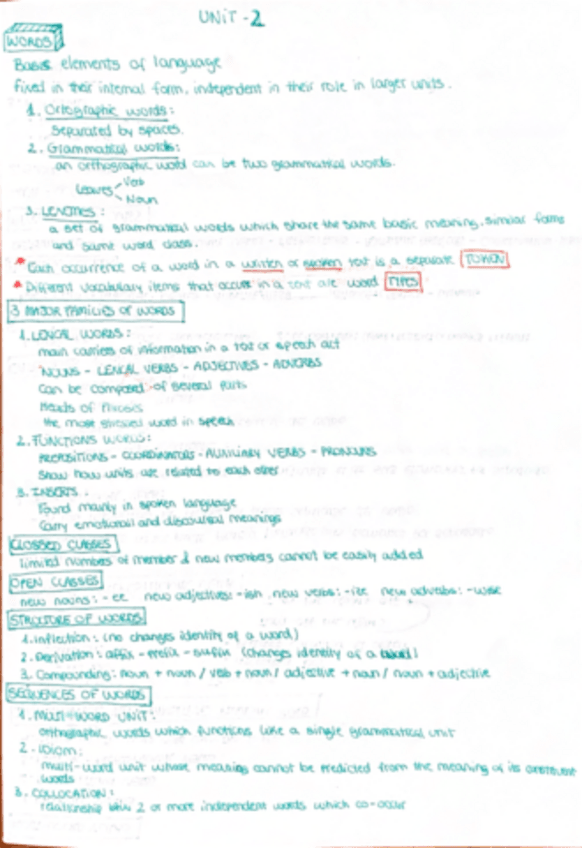 UNIT - 2
WORDS
Basic elements of language
fixed in their internal form, independent in their role in larger units.
1. Ortographic words:
Separated by spaces.
2. Grammatical words:
an orthographic word can be two grammatical words.
Leaves - Verb
- Noun
3. LEXEMES:
a set of grammatical words which share the same basic meaning, similar forms
and same word class.
* Each occurrence of a word in a written or spoken text is a separate TOKEN
* Different vocabulary items that occur in a text are word TYPES
3 MAJOR FAMILIES OF WORDS
1. LEXICAL WORDS:
main carriers of information in a text or speech act
NOUNS - LEXICAL VERBS - ADJECTIVES - ADVERBS
Can be composed of several parts
Heads of Phrases
the most stressed word in speech
2. FUNCTIONS WORDS:
PREPOSITIONS - COORDINATORS - AUXILIARY VERBS - PRONOUNS
Show how units are related to each other
3. INSERTS.
Found mainly in spoken language
Carry emotional and discoursal meanings
CLOSSED CLASSES
limited numbers of member & new members cannot be easily added
OPEN CLASSES
new nouns: -ee new adjectives: -ish new verbs: -ize new adverbs: -wise
STRUCTURE OF WORDS
1. Inflection: (no changes identity of a word)
2. Derivation: affix - prefix - suffix (changes identity of a word)
3. Compounding: noun + noun / verb + noun / adjective + noun / noun + adjective
SEQUENCES OF WORDS
1. MULTI-WORD UNIT:
orthographic words which functions like a single grammatical unit
2. Idiom:
multi-word unit whose meaning cannot be predicted from the meaning of its constituent
words
3. COLLOCATION:
relationship btw 2 or more independent words which co-occur